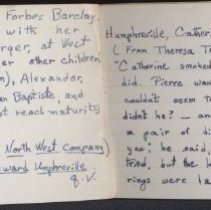 Forbes Barclay.
with her
rger, at West
er other children
n), Alexander,
an Baptiste, and
ot reach maturity
North West Company)
dward Umphreville
q.v.
Humphreville, Cather
(From Theresa Tr
"Catharine smoked
did. Pierre wan
wouldn't seem t
didn't he? — and
a pair of di
you; he said,
tried, but the h
rings were la